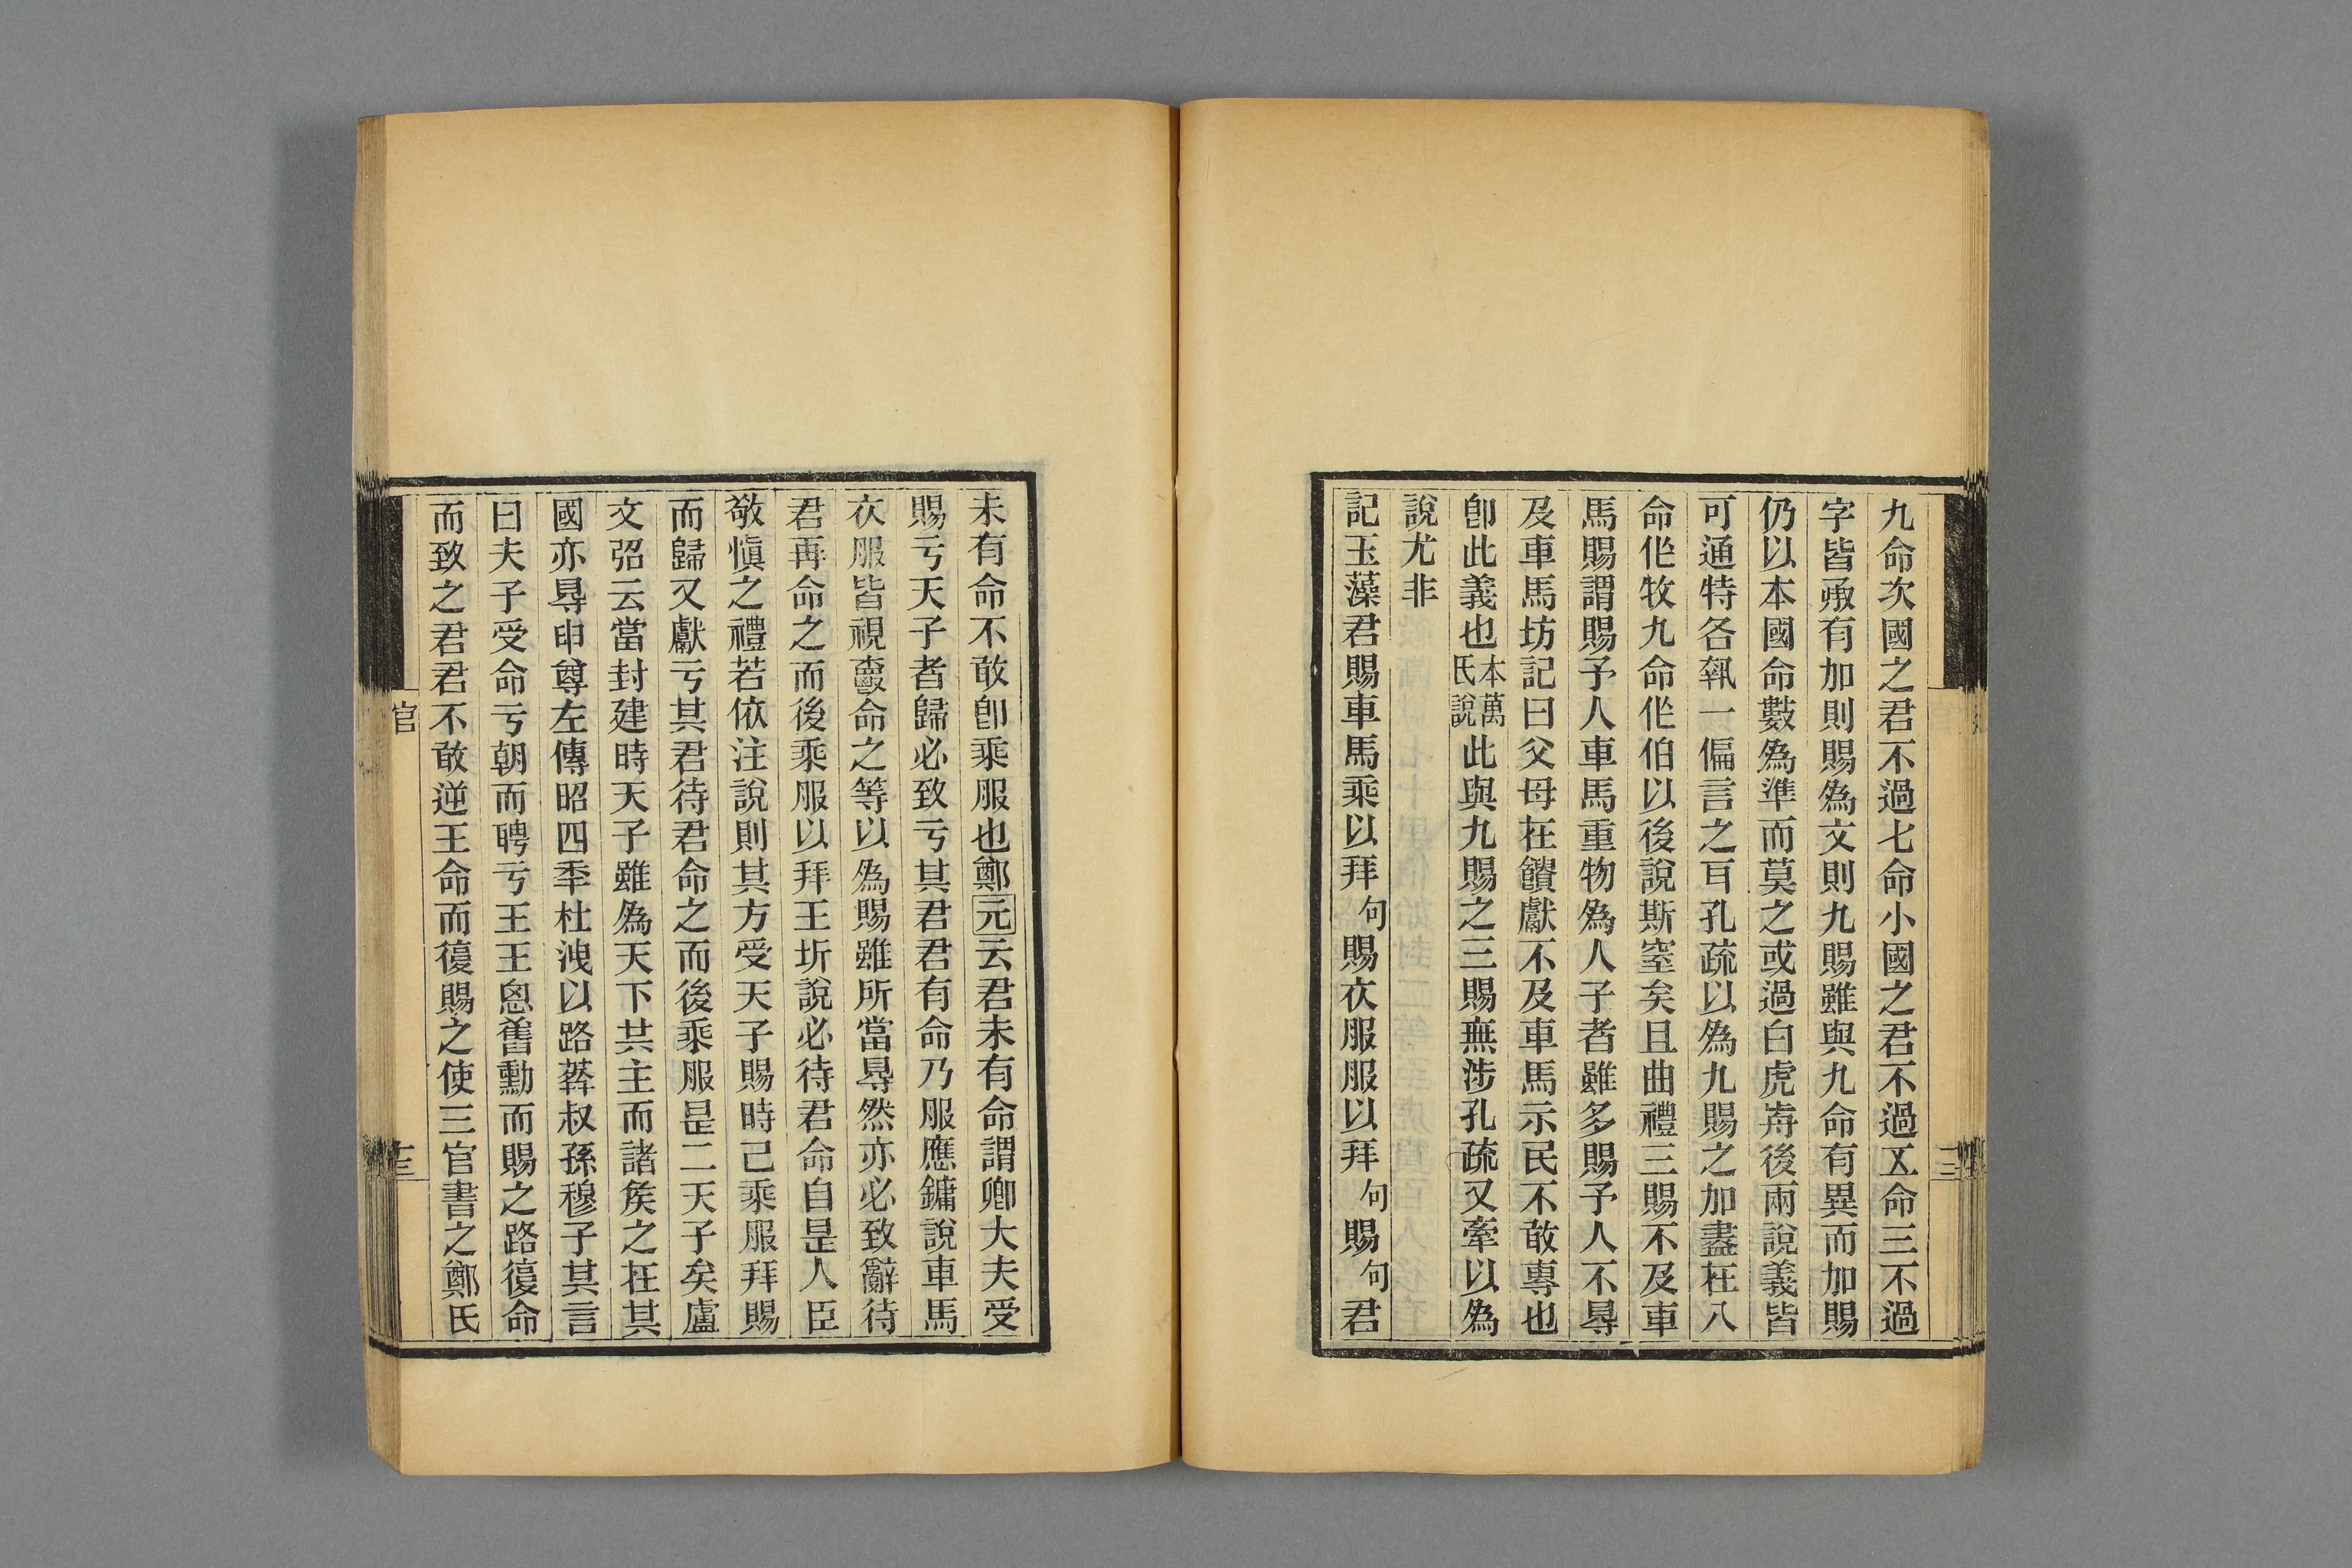 九命次國之君不過七命小國之君不過五命三不過
字皆承有加則賜爲文則九賜雖與九命有異而加賜
仍以本國命數爲準而莫之或過白虎歬後兩說義皆
可通特各執一偏言之耳孔疏以爲九賜之加盡在八
命作牧九命作伯以後說斯窒矣且曲禮三賜不及車
馬賜謂賜予人車馬重物爲人子者雖多賜予人不㝵
及車馬坊記曰父母在饋獻不及車馬示民不敢專也
卽此義也本萬氏說此與九賜之三賜無涉孔疏又牽以爲
說尤非
記玉藻君賜車馬乘以拜句賜衣服服以拜句賜句君
未有命不敢卽乘服也鄭元云君未有命謂卿大夫受
賜亏天子者歸必致亏其君君有命乃服應鏞說車馬
衣服皆視命之等以爲賜雖所當㝵然亦必致辭待
君再命之而後乘服以拜王圻說必待君命自是人臣
敬愼之禮若依注說則其方受天子賜時已乘服拜賜
而歸又獻亏其君待君命之而後乘服是二天子矣盧
文弨云當封建時天子雖爲天下共主而諸矦之在其
國亦㝵申尊左傳昭四秊杜洩以路葬叔孫穆子其言
曰夫子受命亏朝而聘亏王王恖舊勳而賜之路復命
而致之君君不敢逆王命而復賜之使三官書之鄭氏
官
十三